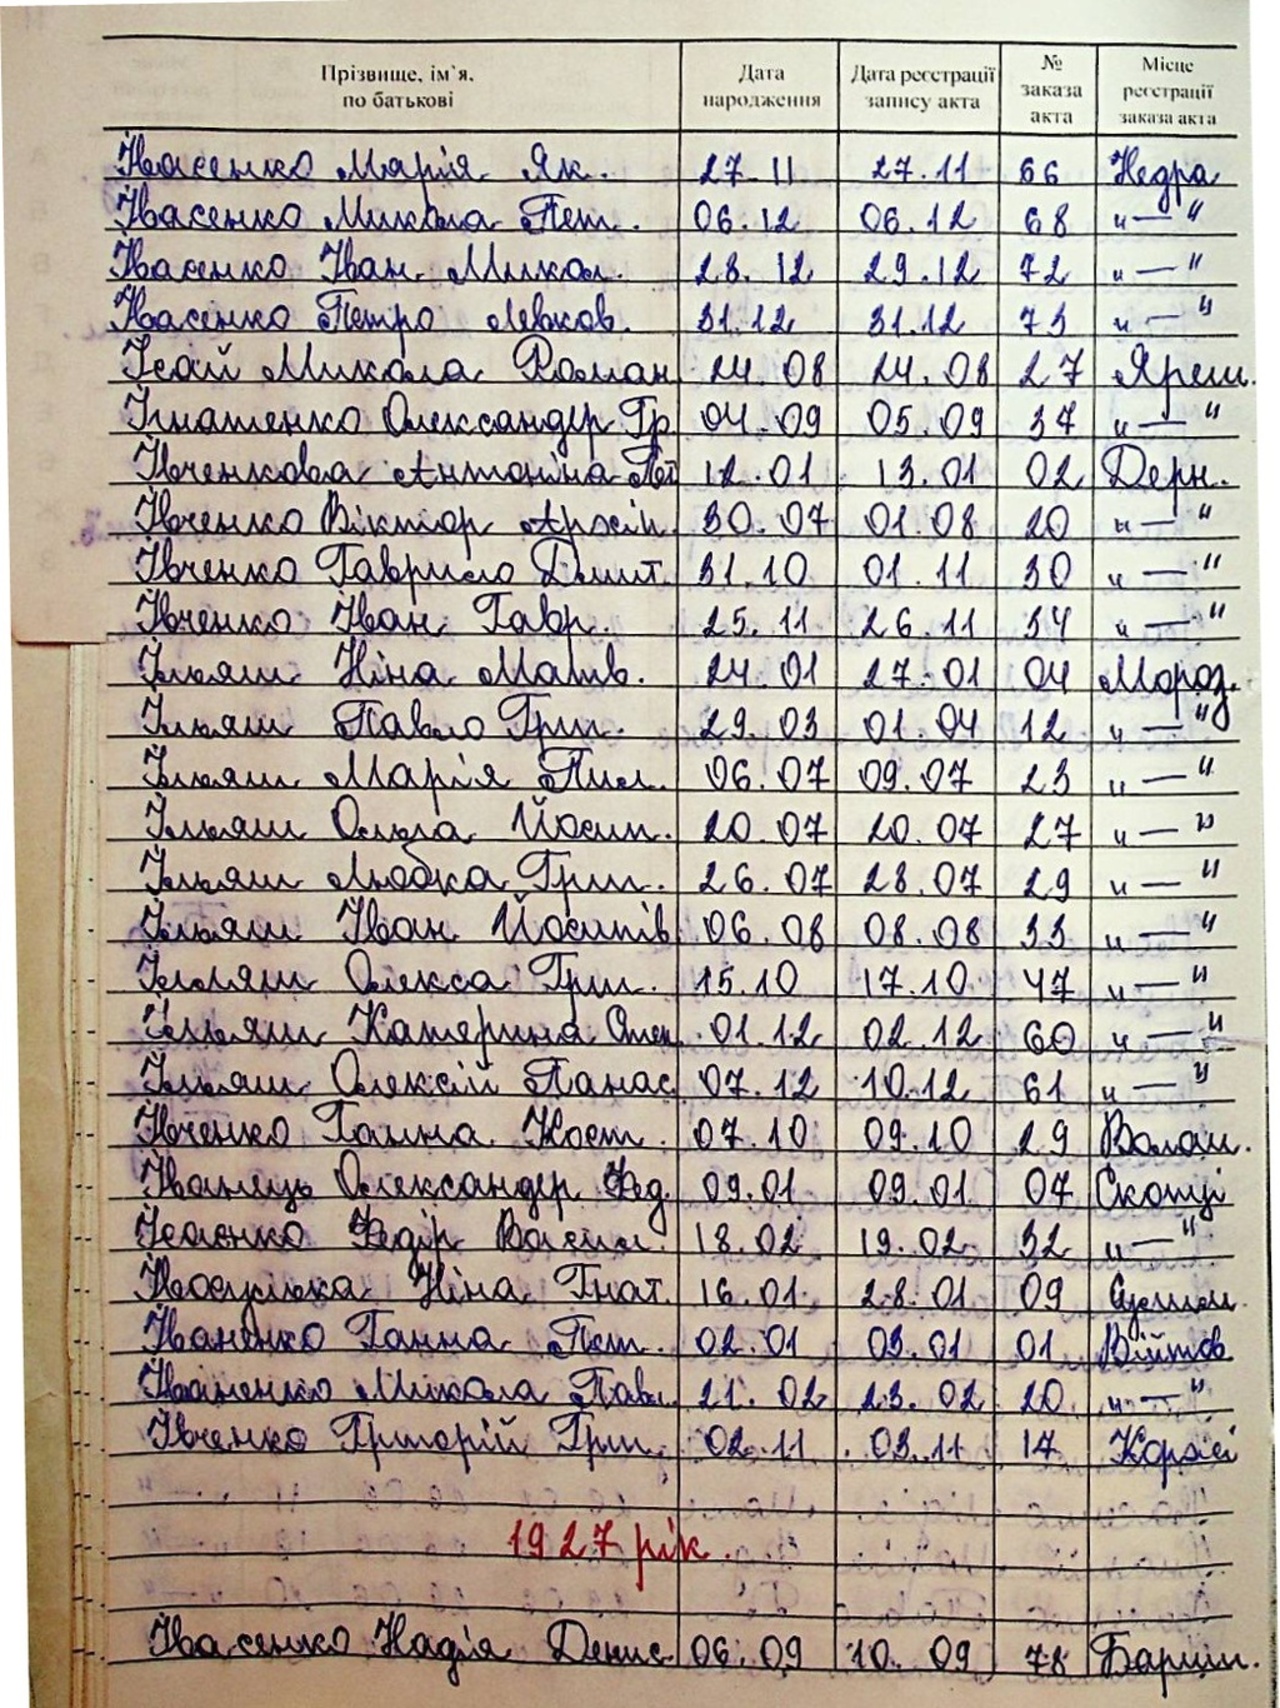 Прізвище, ім`я, по батькові | Дата народження | Дата реєстрації запису акта | № заказа акта | Місце реєстрації заказа акта
Івасенко Марія Як. 27.11 27.11 66 Недра
Івасенко Микола Пет. 06.12 06.12 68 "—"
Івасенко Іван Микол. 28.12 29.12 72 "—"
Івасенко Петро Левков. 31.12 31.12 73 "—"
Ісай Микола Роман 24.08 24.08 27 Яреш.
Ігнатенко Олександер Гр. 04.09 05.09 37 "—"
Івченкова Антоніна Пет 12.01 13.01 02 Дерн.
Івченко Віктор 30.07 01.08 20 "—"
Івченко Гаврило Дмит. 31.10 01.11 30 "—"
Івченко Іван Гавр. 25.11 26.11 34 "—"
Ільяш Ніна Матв. 24.01 27.01 04 Мороз.
Ільяш Павло Григ. 29.03 01.04 12 "—"
Ільяш Марія Пил. 06.07 09.07 23 "—"
Ільяш Ольга Йосип. 20.07 20.07 27 "—"
Ільяш Любка Григ. 26.07 28.07 29 "—"
Ільяш Іван Йосипів 06.08 08.08 33 "—"
Ілляш Олекса Григ. 15.10 17.10 47 "—"
Ільяш Катерина Степ 01.12 02.12 60 "—"
Ільяш Олексій Панас. 07.12 10.12 61 "—"
Івченко Ганна Кост. 07.10 09.10 29 Волош.
Іванець Олександер Фед. 09.01 09.01 07 Скопці
Ісаєнко Федір Васил. 18.02 19.02 32 "—"
Ніна Гнат. 16.01 28.01 09
Іваненко Ганна Пет. 02.01 03.01 01 Війтов
Іваненко Микола Павл. 21.02 23.02 20 "—"
Івченко Григорій Григ. 02.11 03.11 17 Коржі
1927 рік.
Івасенко Надія Денис 06.09 10.09 78 Бариш.